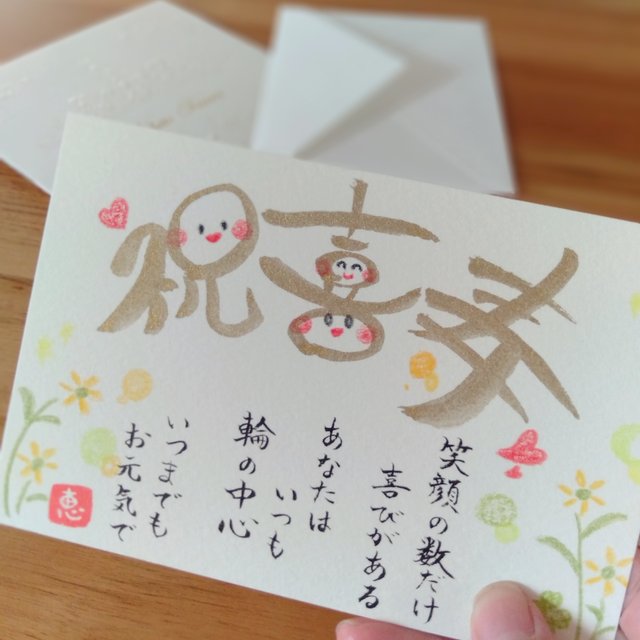 祝喜寿
笑顔の数だけ
喜びがある
あなたは
いつも
輪の中心
いつまでも
お元気で
恵